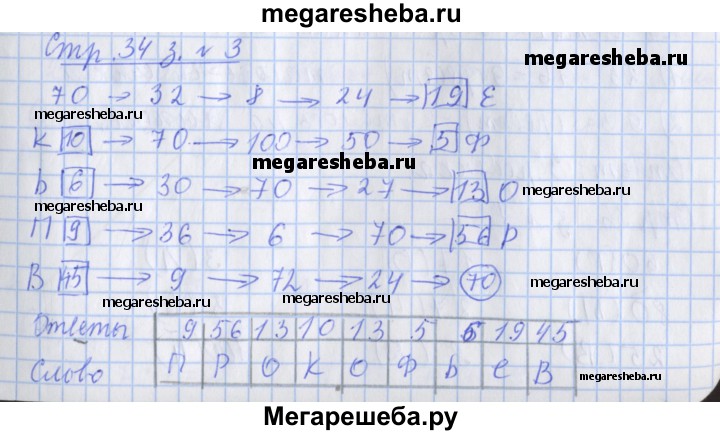 megaresheba.ru
Стр. 34 з. № 3
megaresheba.ru
70 → 32 → 8 → 24 → 19 Е
megaresheba.ru
К 10 → 70 → 100 → 50 → 5 Ф
megaresheba.ru
Ь 6 → 30 → 70 → 27 → 13 О
megaresheba.ru
П 9 → 36 → 6 → 70 → 56 Р
megaresheba.ru
В 45 → 9 → 72 → 24 → 70
megaresheba.ru
megaresheba.ru
megaresheba.ru
Ответы 9 56 13 10 13 5 6 19 45
Слово П Р О К О Ф Ь Е В
megaresheba.ru
megaresheba.ru
Мегарешеба.ру